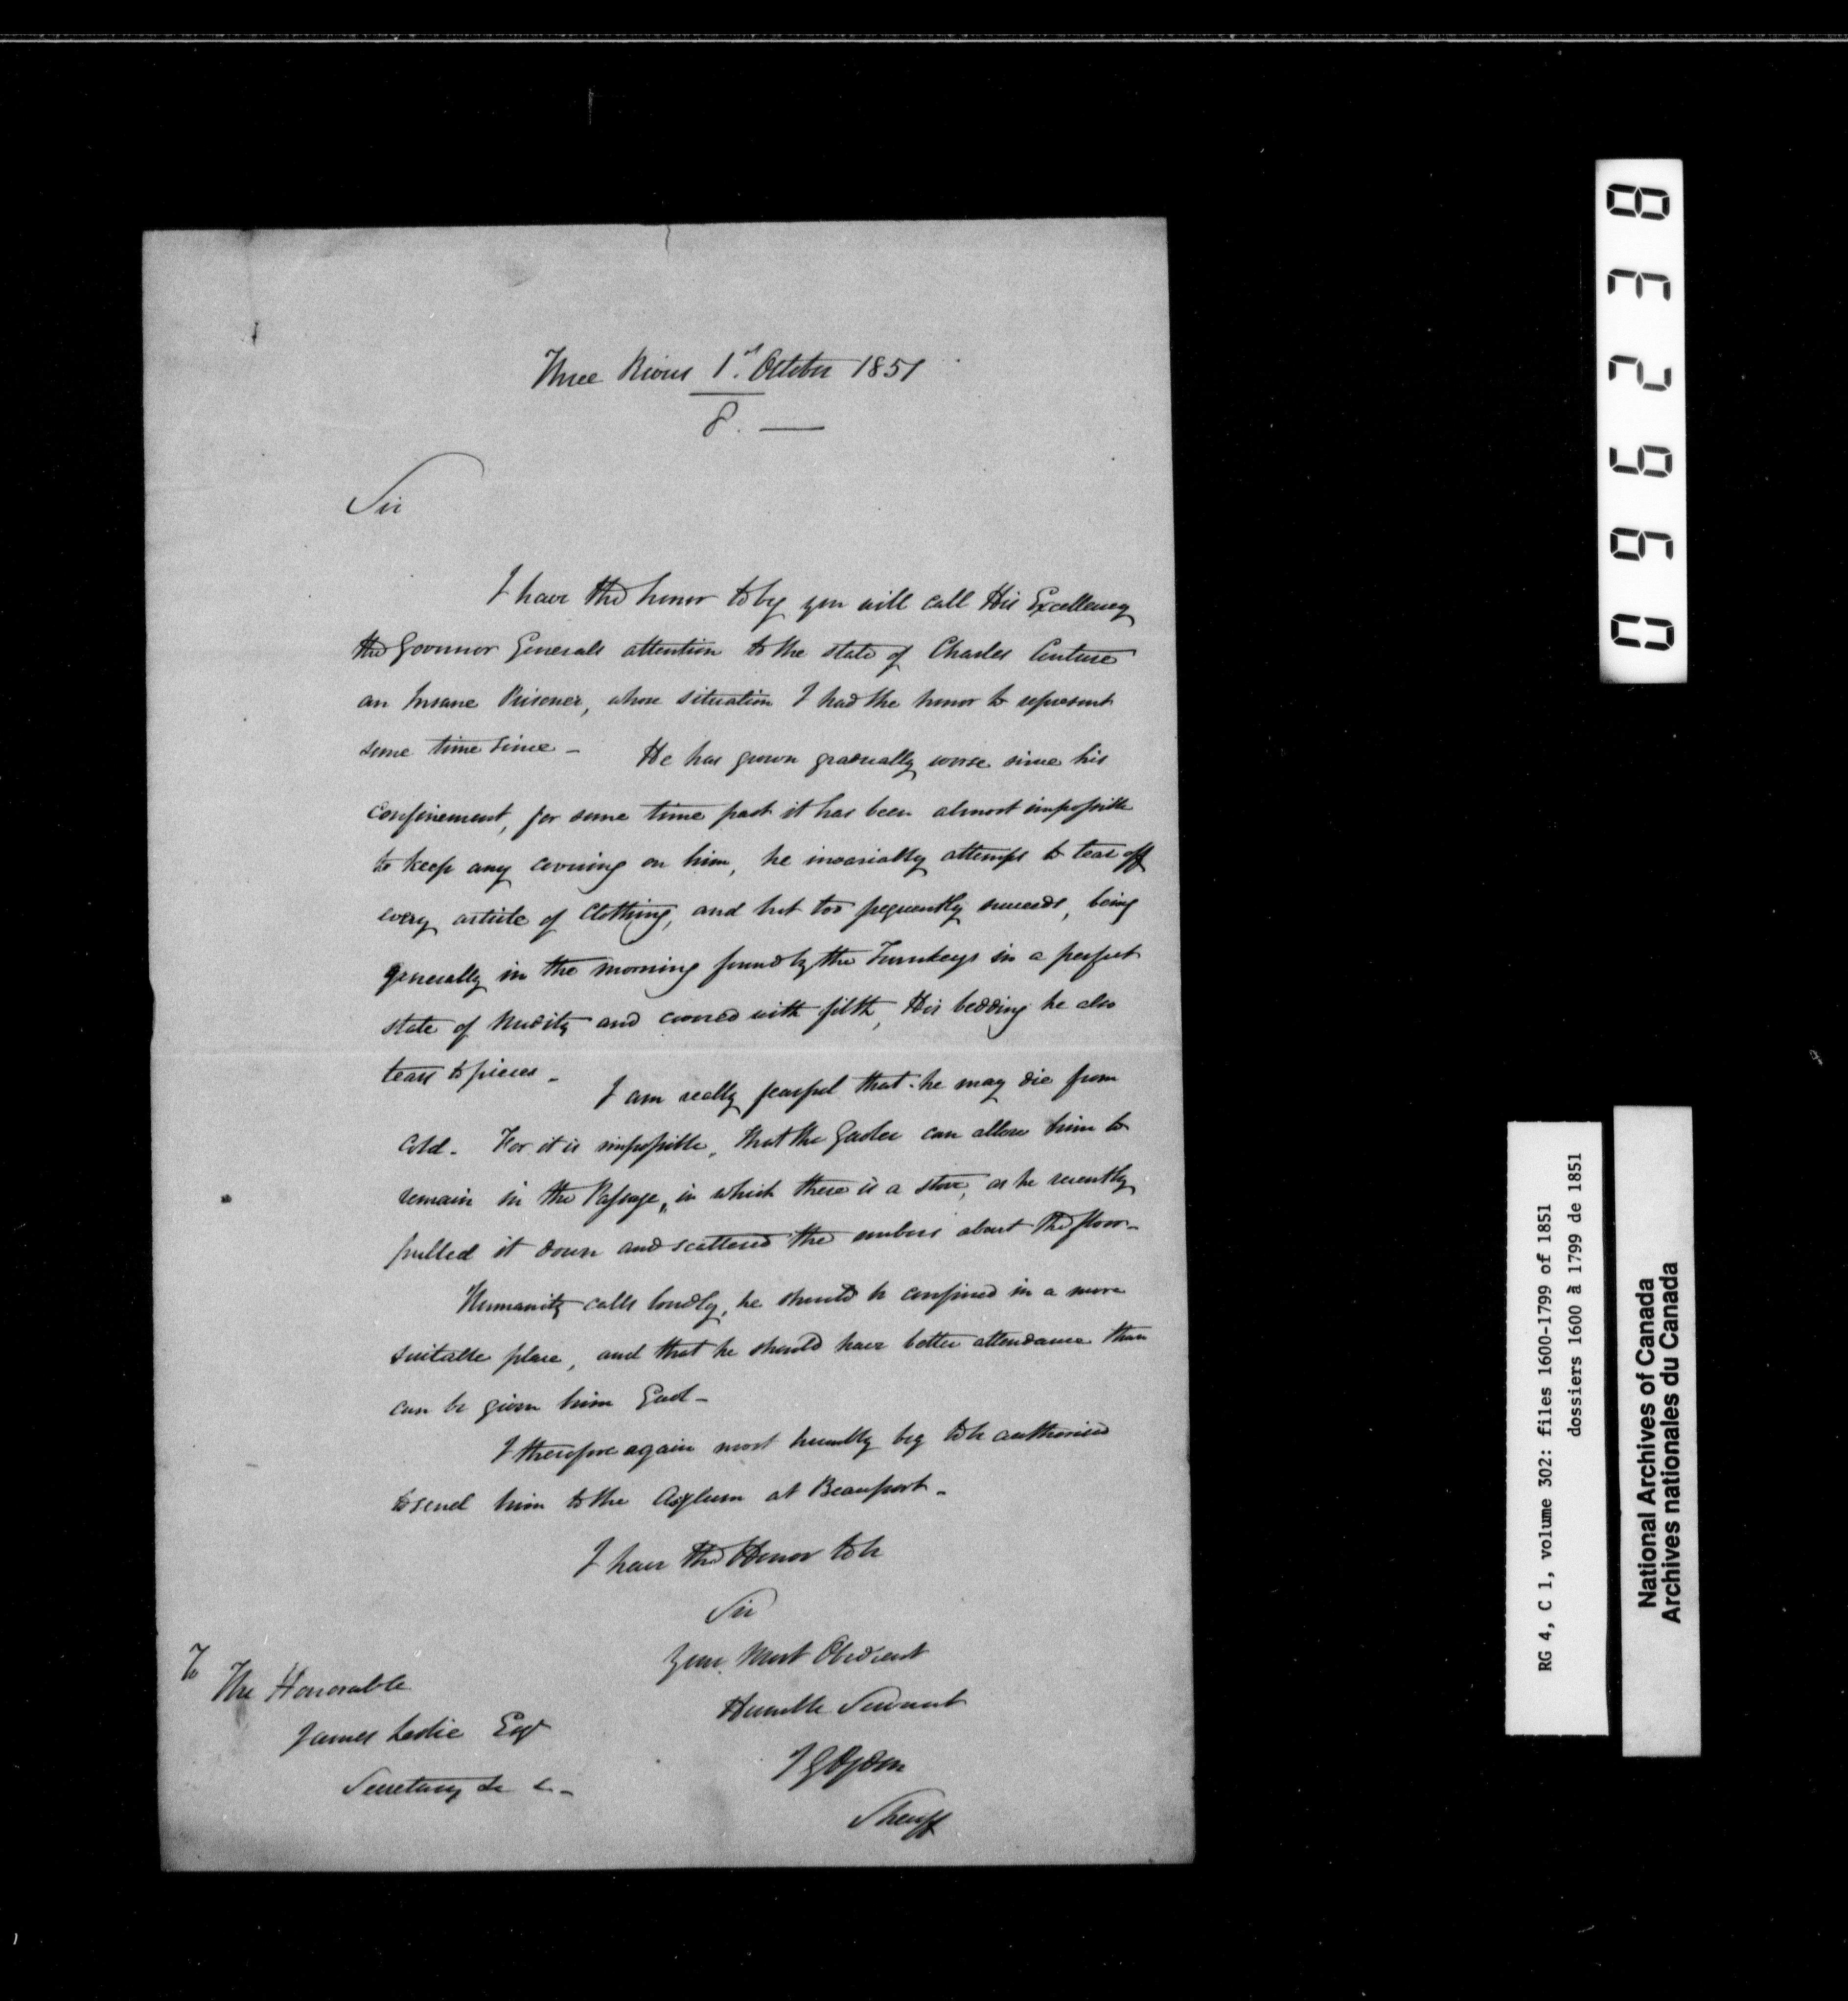 Three Rivers 1st. October 1851
8. —
Sir
I have the honor to beg you will call His Excellency
the Governor Generals attention to the state of Charles Couture
an Insane Prisoner, whose situation I had the honor to represent
some time since - He has grown gradually worse since his
confinement, for some time past it has been almost impossible
to keep any covering on him, he invariably attemps to tear off
every article of Clothing, and but too frequently succeeds, being
generally in the morning found by the Turnkeys in a perfect
state of Nudity and covered with filth, His bedding he also
tears to pieces - I am really fearful that he may die from
Cold. For it is impossible, that the Gaoler can allow him to
remain in the Passage, in which there is a stove, as he recently
pulled it down and scattered the embers about the floor -
Humanity calls loudly, he should be confined in a more
suitable place, and that he should have better attendance than
can be given him Gaol -
I therefore again most humbly beg to be authorised
to send him to the Asylum at Beauport -
I have the Honor to be
Sir
Your Most Obedient
Humble Servant
I G Ogden
Sheriff
To
The Honorable
James Leslie Esqr
Secretary &c &c -
096238
RG 4, C 1, volume 302: files 1600-1799 of 1851
dossiers 1600 à 1799 de 1851
National Archives of Canada
Archives nationales du Canada